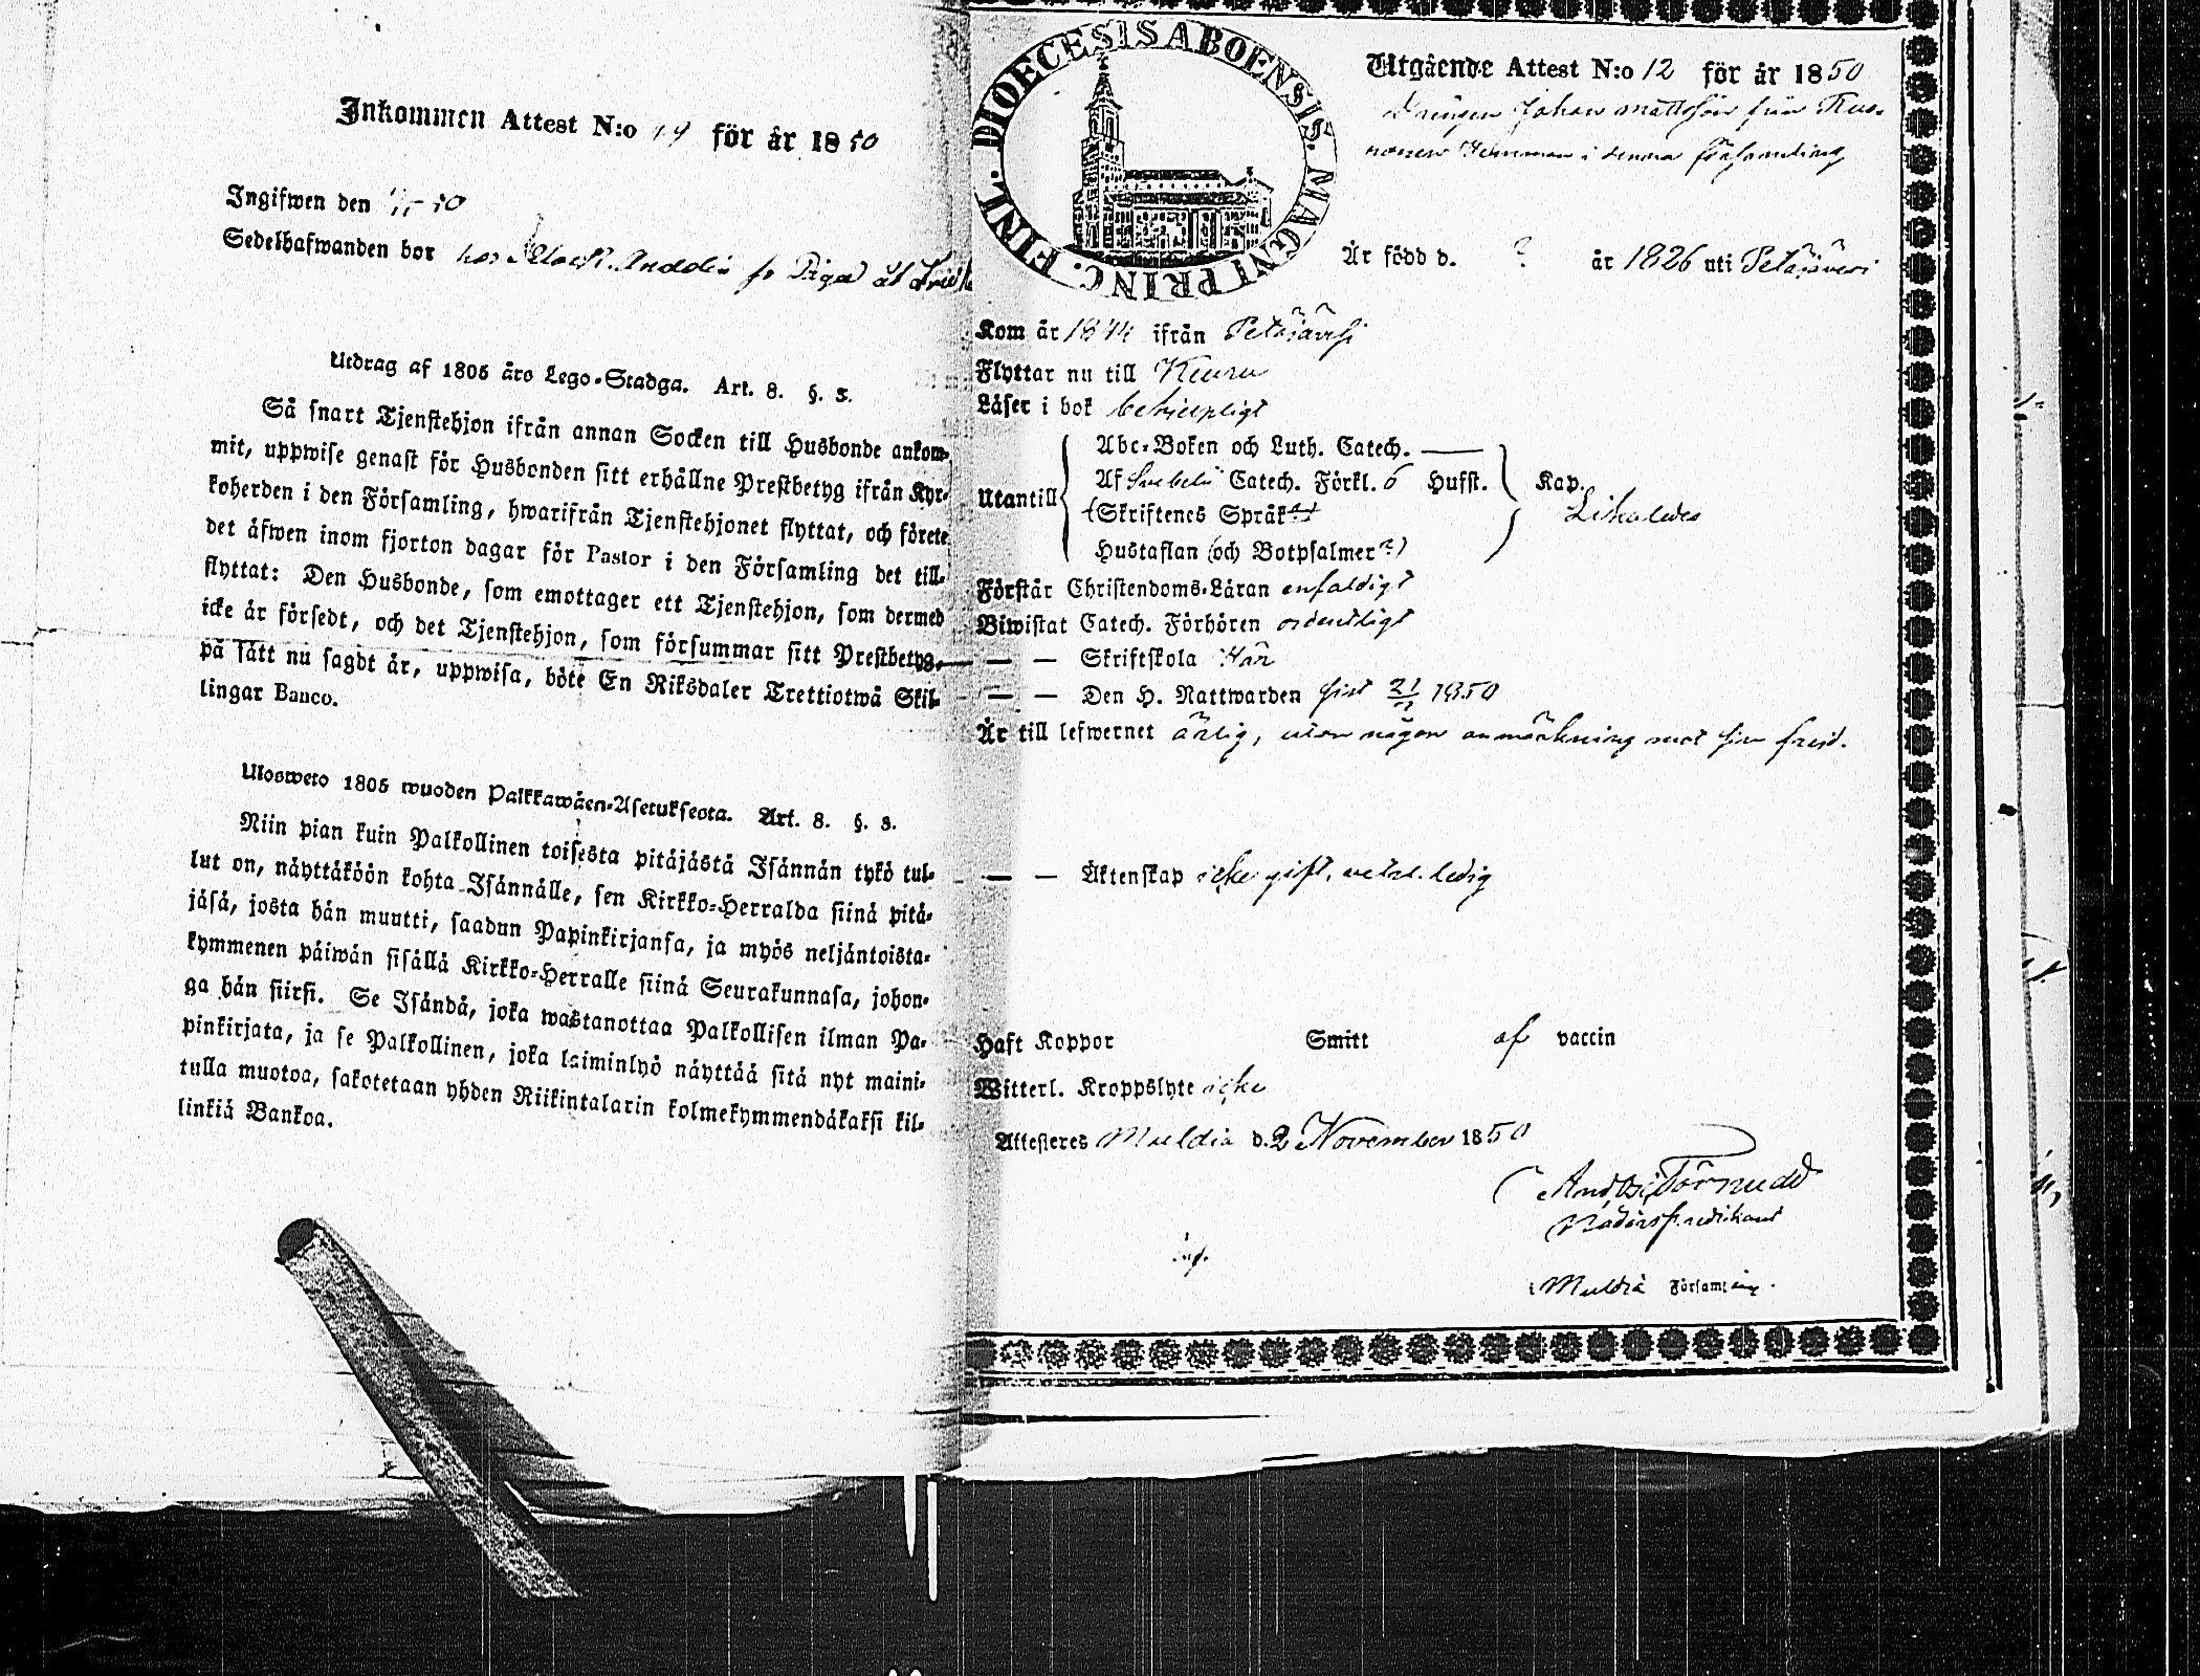 Inkommen Attest N:o 19 för år 1850
Ingifwen den 1/11 50
Sedelhafwanden bor hos
Utdrag af 1805 års Lego-Stadga. Art. 8. §. 3.
Så snart Tjenstehjon ifrån annan Socken till Husbonde ankom-
mit, uppwise genast för Husbonden sitt erhållne Prestbetyg ifrån Kyr-
koherden i den Församling, hwarifrån Tjenstehjonet flyttat, och förete
det äfwen inom fjorton dagar för Pastor i den Församling det till-
flyttat: Den Husbonde, som emottager ett Tjenstehjon, som dermed
icke är försedt, och det Tjenstehjon, som försummar sitt Prestbetyg,
på sätt nu sagdt är, uppwisa, böte En Riksdaler Trettiotwå Skil-
lingar Banco.
Ulosweto 1805 wuoden Palkkawäen-Asetuksesta. Art. 8. §. 3.
Niin pian kuin Palkollinen toisesta pitäjästä Isännän tykö tul-
lut on, näyttäköön kohta Isännälle, sen Kirkko-Herralda siinä pitä-
jäsä, josta hän muutti, saadun Papinkirjansa, ja myös neljäntoista-
kymmenen päiwän sisällä Kirkko-Herralle siinä Seurakunnasa, johon-
ga hän siirsi. Se Isändä, joka wastanottaa Palkollisen ilman Pa-
pinkirjata, ja se Palkollinen, joka laiminlyö näyttää sitä nyt maini-
tulla muotoa, sakotetaan yhden Riikintalarin kolmekymmendäkaksi kil-
linkiä Bankoa.
DIOECESIS ABOENSIS. MAGNI PRINC. FINL.
Utgående Attest N:o 12 för år 1850
Drängen Johan Mattsson från
hemman i denna församling
Är född d. ? år 1826 uti Petäjävesi
Kom år ifrån Petäjävesi
Flyttar nu till Keuru
Läser i bok behjelpligt
Utantill
Abc-Boken och Luth. Catech. —
Af Svebelii Catech. Förkl. 6 Hufst. Kap.
(Skriftenes Språk)
Likaledes
Hustaflan (och Botpsalmer)
Förstår Christendoms-Läran enfaldigt
Biwistat Catech. Förhören ordentligt
— — Skriftskola här
— — Den H. Nattwarden sist 1850
Är till lefwernet ärlig, utan någon anmärkning mot sin frejd.
— — Äktenskap icke gift, ledig
Haft Koppor Smitt af vaccin
Witterl. Kroppslyte icke
Attesteres Muldia d. 2 November 1850
Törnudd
Muldia Församling.